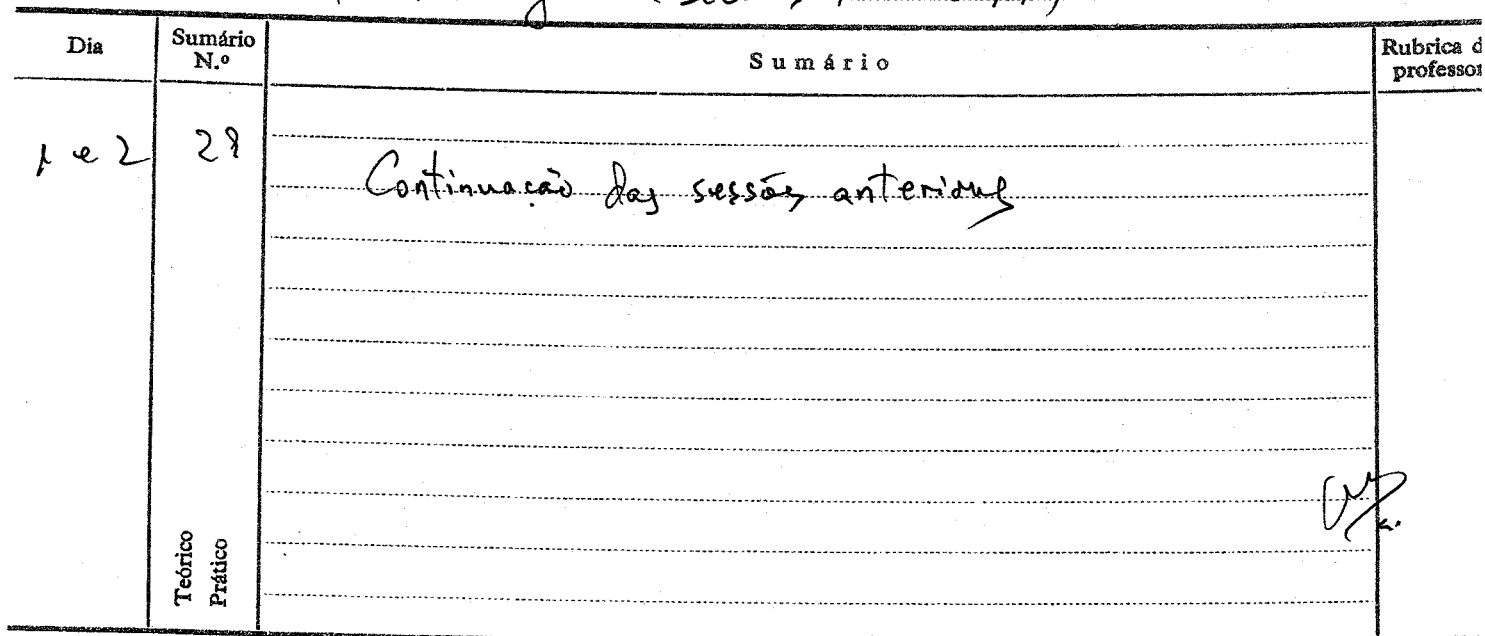 Dia Sumário N.º Sumário Rubrica d professor
1 e 2 28
Continuação das sessões anteriores
Teórico
Prático